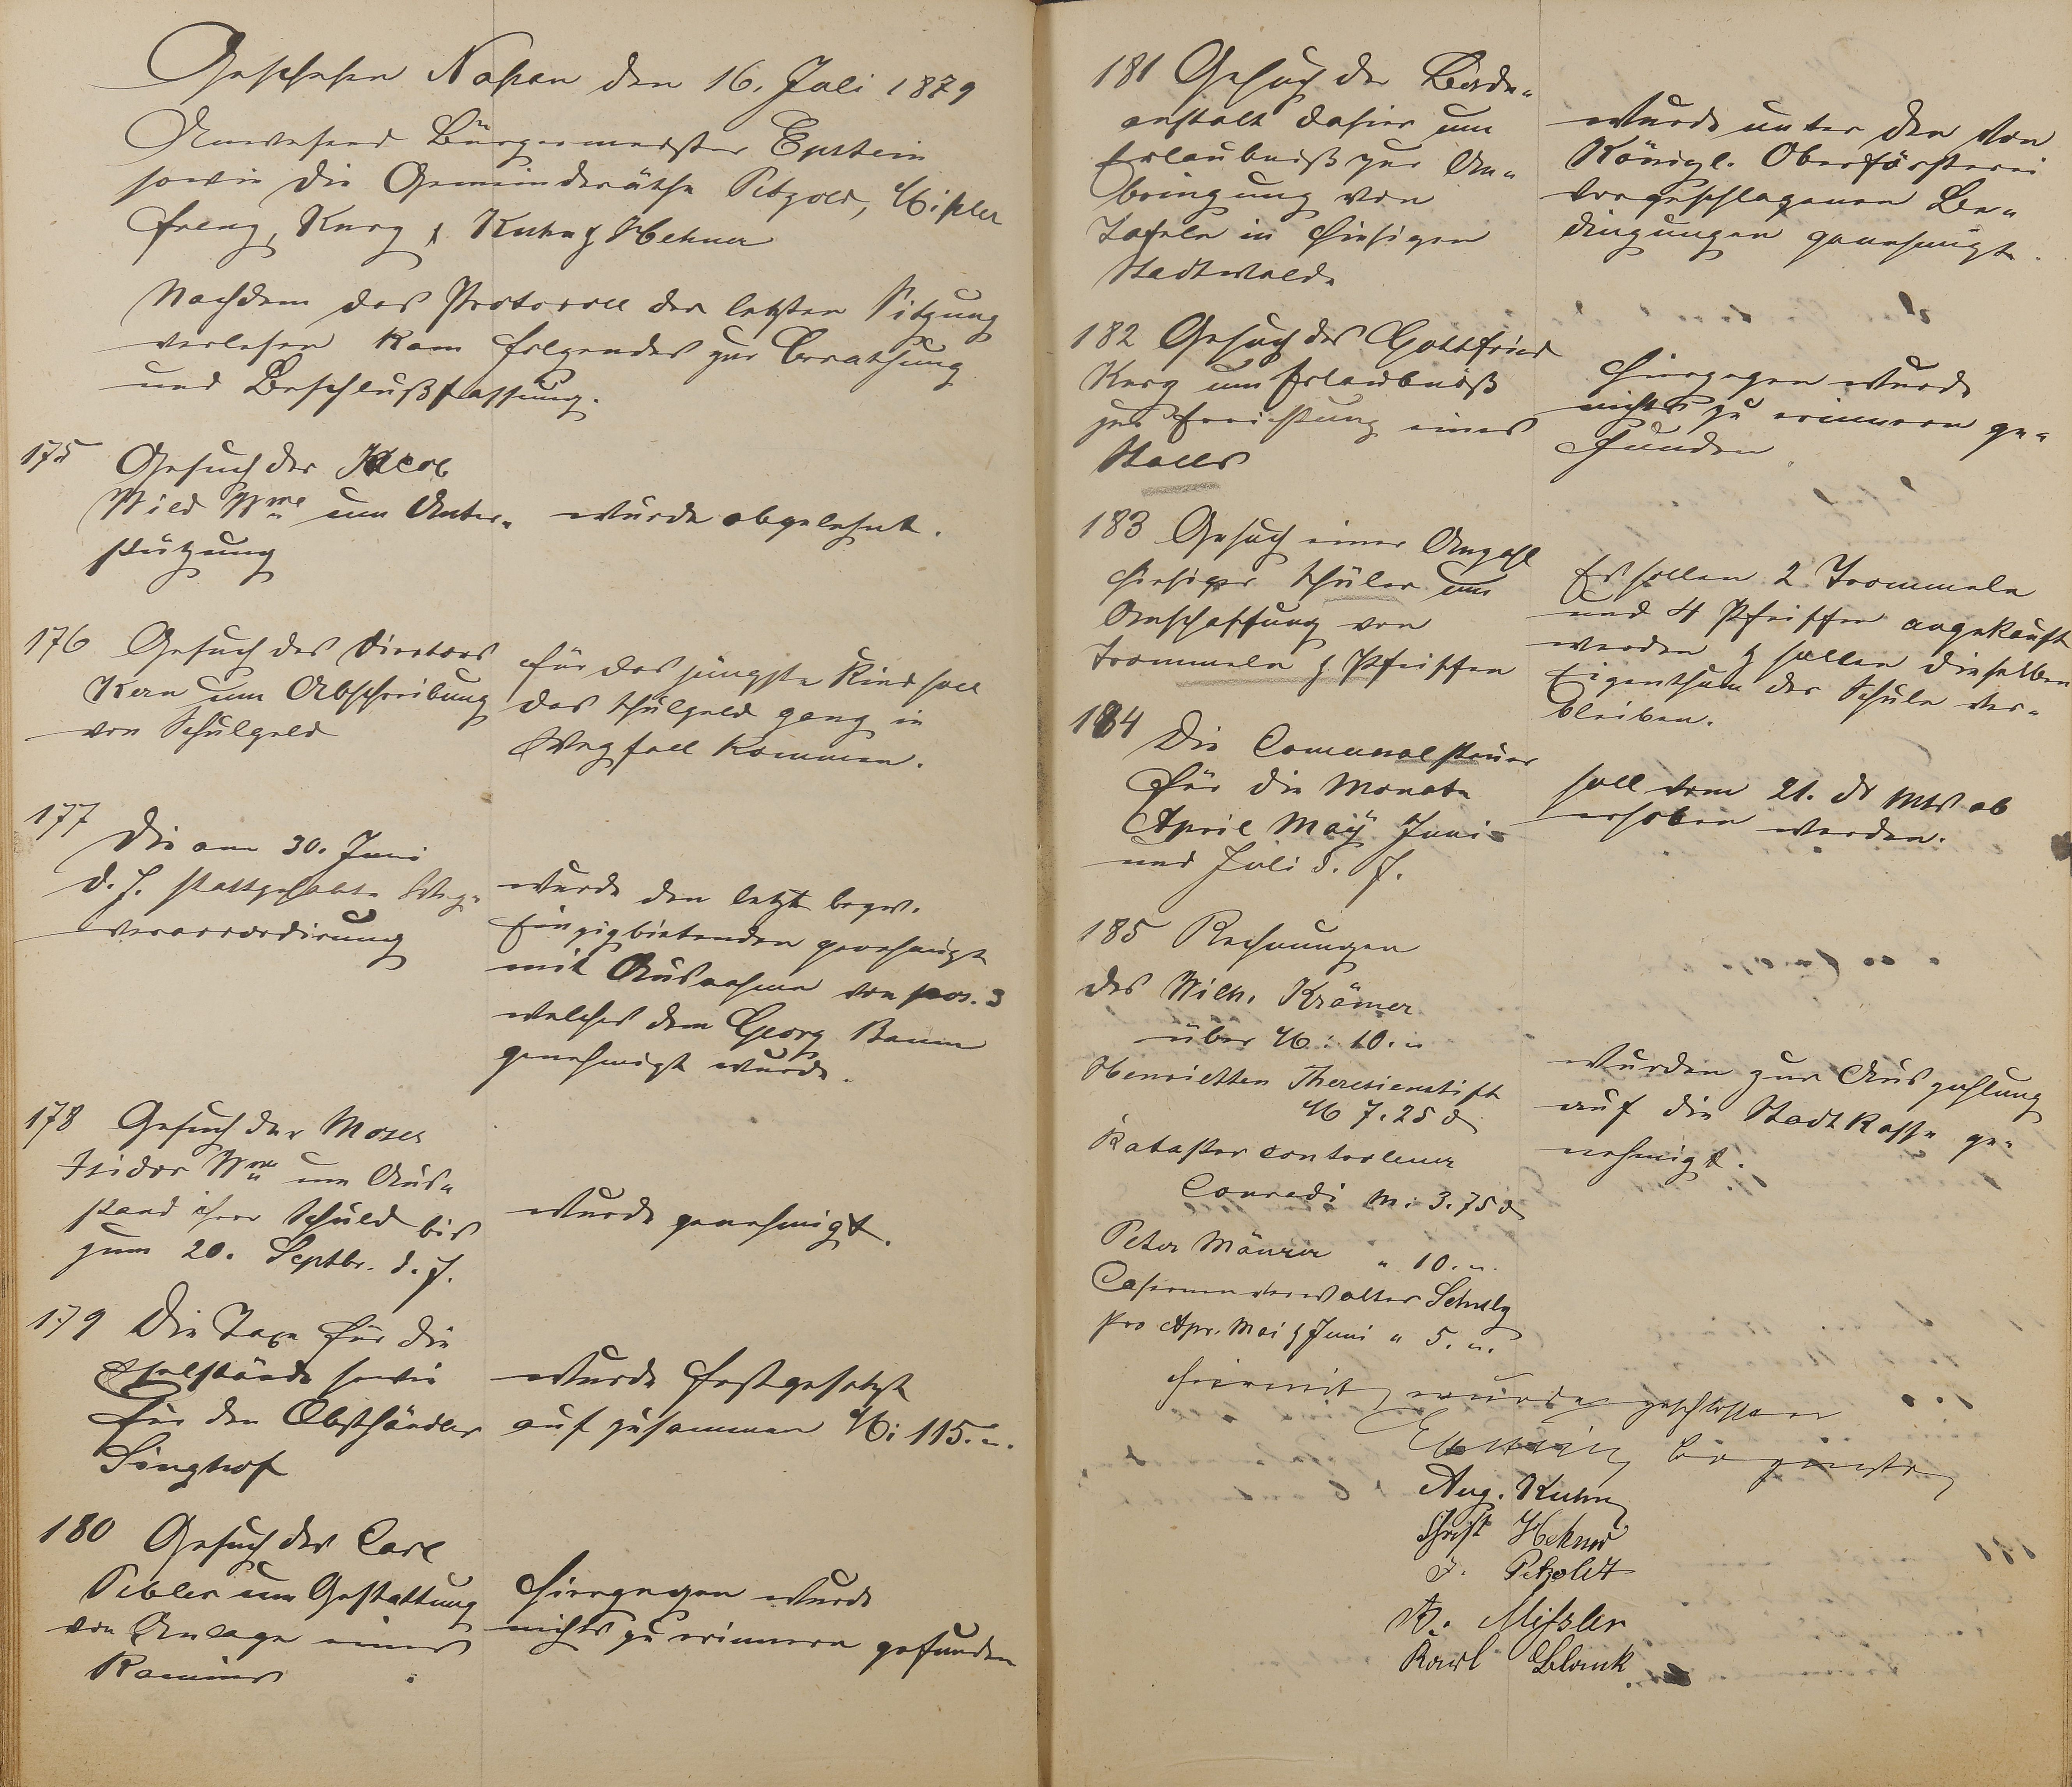 Geschehen Naßau den 16. Juli 1879
Anwesend Bürgermeister Epstein
sowie die Gemeinderäthe Petzold, Mißler
Kurz & Kuhn & Hehner
Nachdem das Protocoll der letzten Sitzung
verlesen kam folgendes zur Berathung
und Beschlußfassung.
175 Gesuch der Jacob
Wild Wwe um Unter-
stützung
wurde abgelehnt.
176 Gesuch des Directors
Kern um Abschreibung
von Schulgeld
für das jüngste Kind soll
das Schulgeld ganz in
Wegfall kommen.
177
Die am 30. Juni
d. J. stattgehabte Weg-
veraccordirung
wurde den letzt bezw.
Einzigbietenden genehmigt
mit Ausnahme von pos. 3
welches dem Georg Baum
genehmigt wurde.
178 Gesuch der Moses
Isidor Wwe um Aus-
stand ihrer Schuld bis
zum 20. Septbr. d. J.
wurde genehmigt.
179 Die Taxe für die
Eselstände sowie
für den Obsthändler
Singhof
wurde festgesetzt
auf zusammen M: 115.-.
180 Gesuch des Carl
Pebler um Gestattung
von Anlage eines
Kamins
Hiergegen wurde
nichts zu erinnern gefunden
181 Gesuch der Bade-
anstalt dahier um
Erlaubniß zur An-
bringung von
Tafeln in hiesigen
Stadtwalde
wurde unter den von
Königl. Oberförsterei
vorgeschlagenen Be-
dingungen genehmigt.
182 Gesuch des Gottfried
Kurz um Erlaubniß
zur Errichtung eines
Stalls
Hiergegen wurde
nichts zu erinnern ge-
funden
183 Gesuch einer Anzahl
hiesiger Schüler um
Anschaffung von
Trommeln & Pfeiffen
Es sollen 2 Trommeln
und 4 Pfeiffen angekauft
werden & sollen dieselben
Eigenthum der Schule ver-
bleiben.
184
Die Communalsteuer
für die Monate
April Maÿ Juni
und Juli d. J.
soll vom 21. ds Mts ab
erhoben werden.
185 Rechnungen
des Wilh. Krämer
über M: 10.-
Henrietten Theresienstift
M 7.25 d
Kataster controleur
Conradi M: 3.75 d
Peter Mäurer " 10.-.
Casernenverwalter Schulz
pro Apr. Mai & Juni " 5.-.
wurden zur Auszahlung
auf die Stadtkasse ge-
nehmigt.
Hiermit wurde geschlossen
Epstein Bürgermstr
Aug. Kuhn
Christ Hehner
J. Petzoldt
K. Mißler
Karl Blank